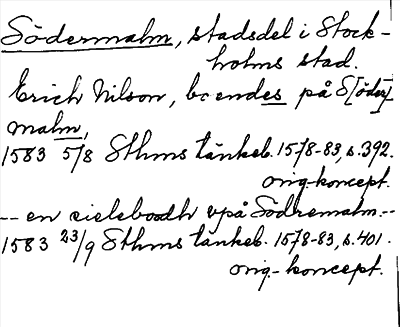 Södermalm, stadsdel i Stock-
holms stad.
Erich Nilson, boendes på S[öder]
malm,
1583 5/8 Sthms tänkeb. 1578-83, s. 392.
orig-koncept.
-- en sieleboodh vpå Södremalm.--
1583 23/9 Sthms tänkeb. 1578-83, s. 401.
orig-koncept.